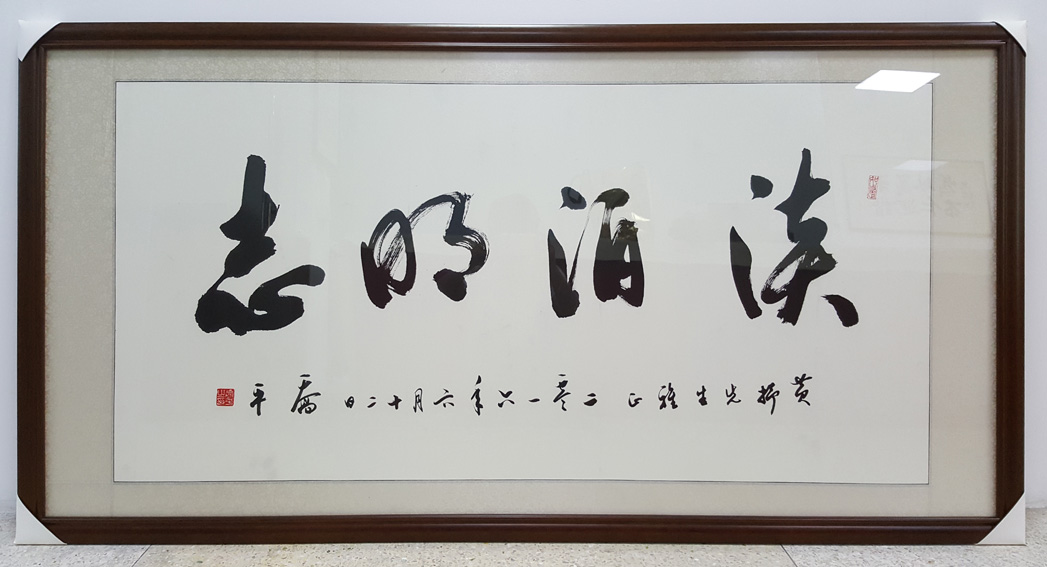 淡泊明志
黄 先生雅正 二零一六年六月十二日 乔平